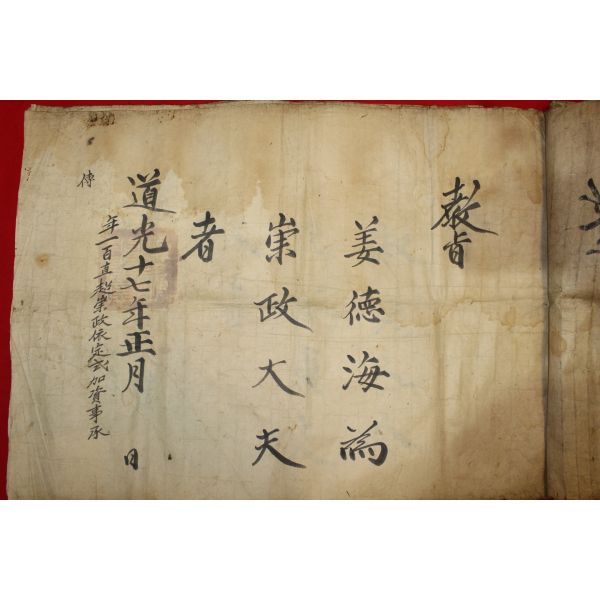 教旨
姜德海為
崇政大夫
者
道光十七年正月 日
年一百直超崇政依定式加資事承
傳